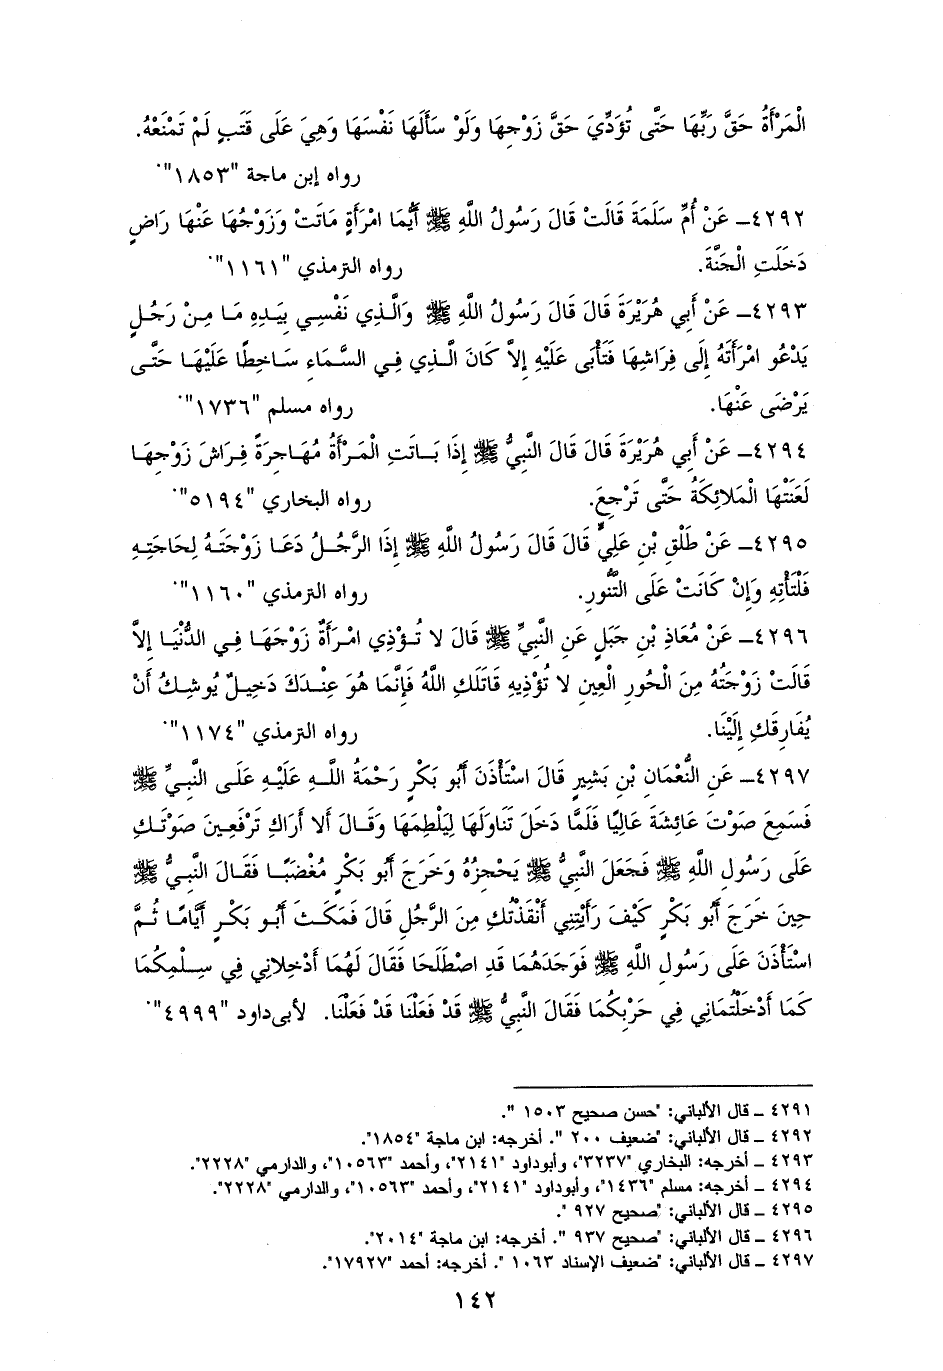 الْمَرْأَةُ حَقَّ رَبِّهَا حَتَّى تُؤَدِّيَ حَقَّ زَوْجِهَا وَلَوْ سَأَلَهَا نَفْسَهَا وَهِيَ عَلَى قَتَبٍ لَمْ تَمْنَعْهُ.
رواه إبن ماجة "١٨٥٣".
٤٢٩٢ـ عَنْ أُمِّ سَلَمَةَ قَالَتْ قَالَ رَسُولُ اللَّهِ ﷺ أَيُّمَا امْرَأَةٍ مَاتَتْ وَزَوْجُهَا عَنْهَا رَاضٍ
دَخَلَتِ الْجَنَّةَ. رواه الترمذي "١١٦١".
٤٢٩٣ـ عَنْ أَبِي هُرَيْرَةَ قَالَ قَالَ رَسُولُ اللَّهِ ﷺ وَالَّذِي نَفْسِي بِيَدِهِ مَا مِنْ رَجُلٍ
يَدْعُو امْرَأَتَهُ إِلَى فِرَاشِهَا فَتَأْبَى عَلَيْهِ إِلاَّ كَانَ الَّذِي فِي السَّمَاءِ سَاخِطًا عَلَيْهَا حَتَّى
يَرْضَى عَنْهَا. رواه مسلم "١٧٣٦".
٤٢٩٤ـ عَنْ أَبِي هُرَيْرَةَ قَالَ قَالَ النَّبِيُّ ﷺ إِذَا بَاتَتِ الْمَرْأَةُ مُهَاجِرَةً فِرَاشَ زَوْجِهَا
لَعَنَتْهَا الْمَلائِكَةُ حَتَّى تَرْجِعَ. رواه البخاري "٥١٩٤".
٤٢٩٥ـ عَنْ طَلْقِ بْنِ عَلِيٍّ قَالَ قَالَ رَسُولُ اللَّهِ ﷺ إِذَا الرَّجُلُ دَعَا زَوْجَتَهُ لِحَاجَتِهِ
فَلْتَأْتِهِ وَإِنْ كَانَتْ عَلَى التَّنُّورِ. رواه الترمذي "١١٦٠".
٤٢٩٦ـ عَنْ مُعَاذِ بْنِ جَبَلٍ عَنِ النَّبِيِّ ﷺ قَالَ لا تُؤْذِي امْرَأَةٌ زَوْجَهَا فِي الدُّنْيَا إِلاَّ
قَالَتْ زَوْجَتُهُ مِنَ الْحُورِ الْعِينِ لا تُؤْذِيهِ قَاتَلَكِ اللَّهُ فَإِنَّمَا هُوَ عِنْدَكَ دَخِيلٌ يُوشِكُ أَنْ
يُفَارِقَكِ إِلَيْنَا. رواه الترمذي "١١٧٤".
٤٢٩٧ـ عَنِ النُّعْمَانِ بْنِ بَشِيرٍ قَالَ اسْتَأْذَنَ أَبُو بَكْرٍ رَحْمَةُ اللَّهِ عَلَيْهِ عَلَى النَّبِيِّ ﷺ
فَسَمِعَ صَوْتَ عَائِشَةَ عَالِيًا فَلَمَّا دَخَلَ تَنَاوَلَهَا لِيَلْطِمَهَا وَقَالَ أَلا أَرَاكِ تَرْفَعِينَ صَوْتَكِ
عَلَى رَسُولِ اللَّهِ ﷺ فَجَعَلَ النَّبِيُّ ﷺ يَحْجِزُهُ وَخَرَجَ أَبُو بَكْرٍ مُغْضَبًا فَقَالَ النَّبِيُّ ﷺ
حِينَ خَرَجَ أَبُو بَكْرٍ كَيْفَ رَأَيْتِنِي أَنْقَذْتُكِ مِنَ الرَّجُلِ قَالَ فَمَكَثَ أَبُو بَكْرٍ أَيَّامًا ثُمَّ
اسْتَأْذَنَ عَلَى رَسُولِ اللَّهِ ﷺ فَوَجَدَهُمَا قَدِ اصْطَلَحَا فَقَالَ لَهُمَا أَدْخِلانِي فِي سِلْمِكُمَا
كَمَا أَدْخَلْتُمَانِي فِي حَرْبِكُمَا فَقَالَ النَّبِيُّ ﷺ قَدْ فَعَلْنَا قَدْ فَعَلْنَا. لأبى داود "٤٩٩٩".
٤٢٩١ ـ قال الألباني: "حسن صحيح ١٥٠٣ ".
٤٢٩٢ ـ قال الألباني: "ضعيف ٢٠٠ ". أخرجه: ابن ماجة "١٨٥٤".
٤٢٩٣ ـ أخرجه: البخاري "٣٢٣٧"، وأبوداود "٢١٤١"، وأحمد "١٠٥٦٣"، والدارمي "٢٢٢٨".
٤٢٩٤ ـ أخرجه: مسلم "١٤٣٦"، وأبوداود "٢١٤١"، وأحمد "١٠٥٦٣"، والدارمي "٢٢٢٨".
٤٢٩٥ ـ قال الألباني: "صحيح ٩٢٧ ".
٤٢٩٦ ـ قال الألباني: "صحيح ٩٣٧ ". أخرجه: ابن ماجة "٢٠١٤".
٤٢٩٧ ـ قال الألباني: "ضعيف الإسناد ١٠٦٣ ". أخرجه: أحمد "١٧٩٢٧".
١٤٢